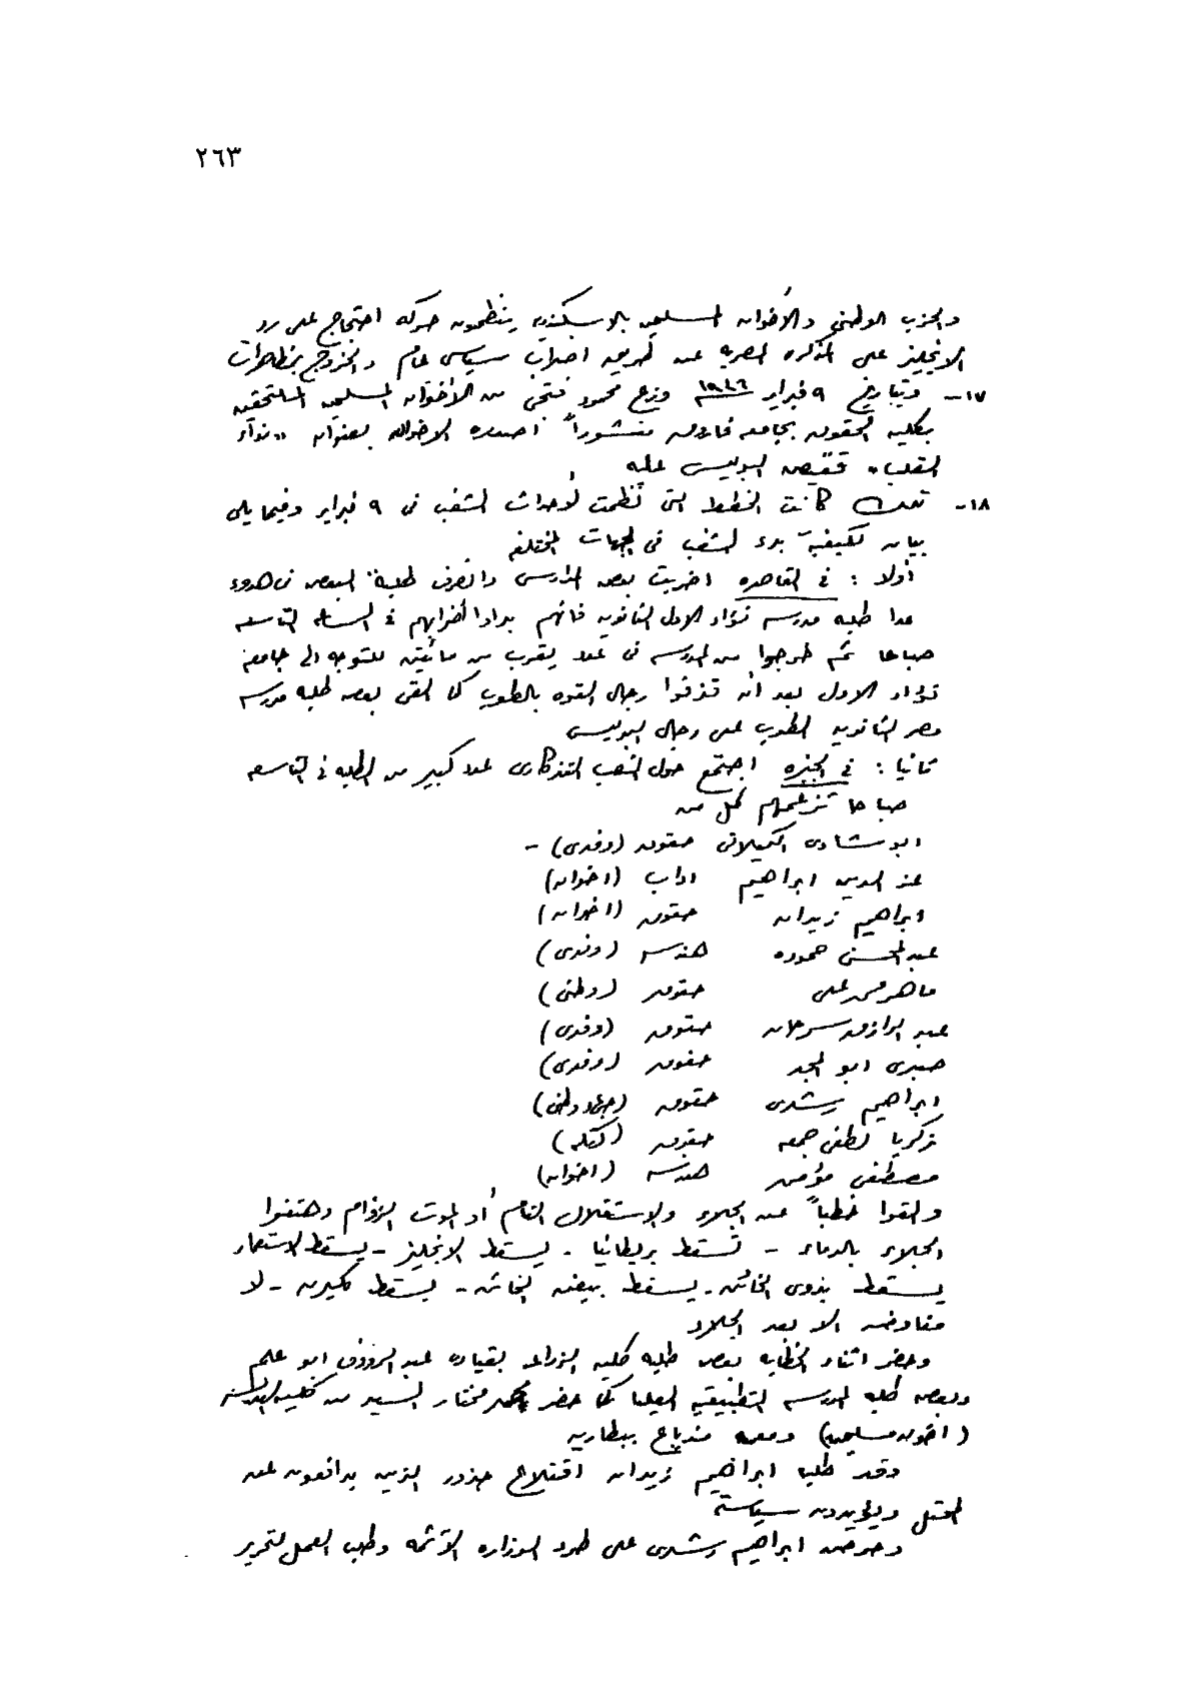 ٢٦٣
والحزب الوطنى والأخوان المسلمين بالاسكندريه ينظمون حركه احتجاج على رد
الانجليز على المذكره المصريه عن طريق اضراب سياسى عام والخروج بمظاهرات
١٧- وبتاريخ ٩ فبراير ١٩٤٦ وزع محمود فتحى من الأخوان المسلمين الملتحقين
بكليه الحقوق بجامعه فاروق منشوراً اصدره الاخوان بعنوان «نداء
الطلبه» قبض البوليس عليه
١٨- تلك كانت الخطط التى نظمت لأحداث الشغب فى ٩ فبراير وفيما يلى
بيان لكيفية بدء الشغب فى الجهات المختلفه
أولا : فى القاهره اضربت بعض المدارس وانصرف طلبة البعض فى هدوء
عدا طلبه مدرسه فؤاد الاول الثانويه فانهم بدأوا أضرابهم فى الساعه التاسعه
صباحا ثم خرجوا من المدرسه فى عدد يقرب من مائتين للتوجه الى جامعه
فؤاد الاول بعد أن قذفوا رجال القوه بالطوب كما القى بعض طلبه مدرسه
مصر الثانويه الطوب على رجال البوليس
ثانيا : فى الجيزه اجتمع حول النصب التذكارى عدد كبير من الطلبه فى التاسعه
صباحا تزعمهم كل من
ابو شادى الكيلانى حقوق (وفدى) -
عز الدين ابراهيم اداب (اخوان)
ابراهيم زيدان حقوق (اخوان)
عبد المحسن حموده هندسه (وفدى)
ماهر محمد على حقوق (وطنى)
عبد الرازق سرحان حقوق (وفدى)
صبرى ابو المجد حقوق (وفدى)
ابراهيم رشدى حقوق (وطنى)
زكريا لطفى جمعه حقوق (كتله)
مصطفى مؤمن هندسه (اخوان)
والقوا خطباً عن الجلاء والاستقلال التام أو الموت الزؤام وهتفوا
الجلاء بالدماء - تسقط بريطانيا - يسقط الانجليز - يسقط الاستعمار
يسقط بدوى الخائن - يسقط بيفن الخائن - يسقط كليرن - لا
مفاوضه الا بعد الجلاء
وحضر اثناء الخطابه بعض طلبه كليه الزراعه بقياده عبد الرؤوف ابو علم
وبعض طلبه المدرسه التطبيقيه العليا كما حضر محمد مختار السيد من كليه الهندسه
(اخوان مسلمين) ومعه مذياع ببطاريه
وقد طلب ابراهيم زيدان اقتلاع جذور الذين يدافعون عن
المحتل ويؤيدون سياسته
وحرض ابراهيم رشدى على طرد الوزاره القائمه وطلب العمل لتحرير